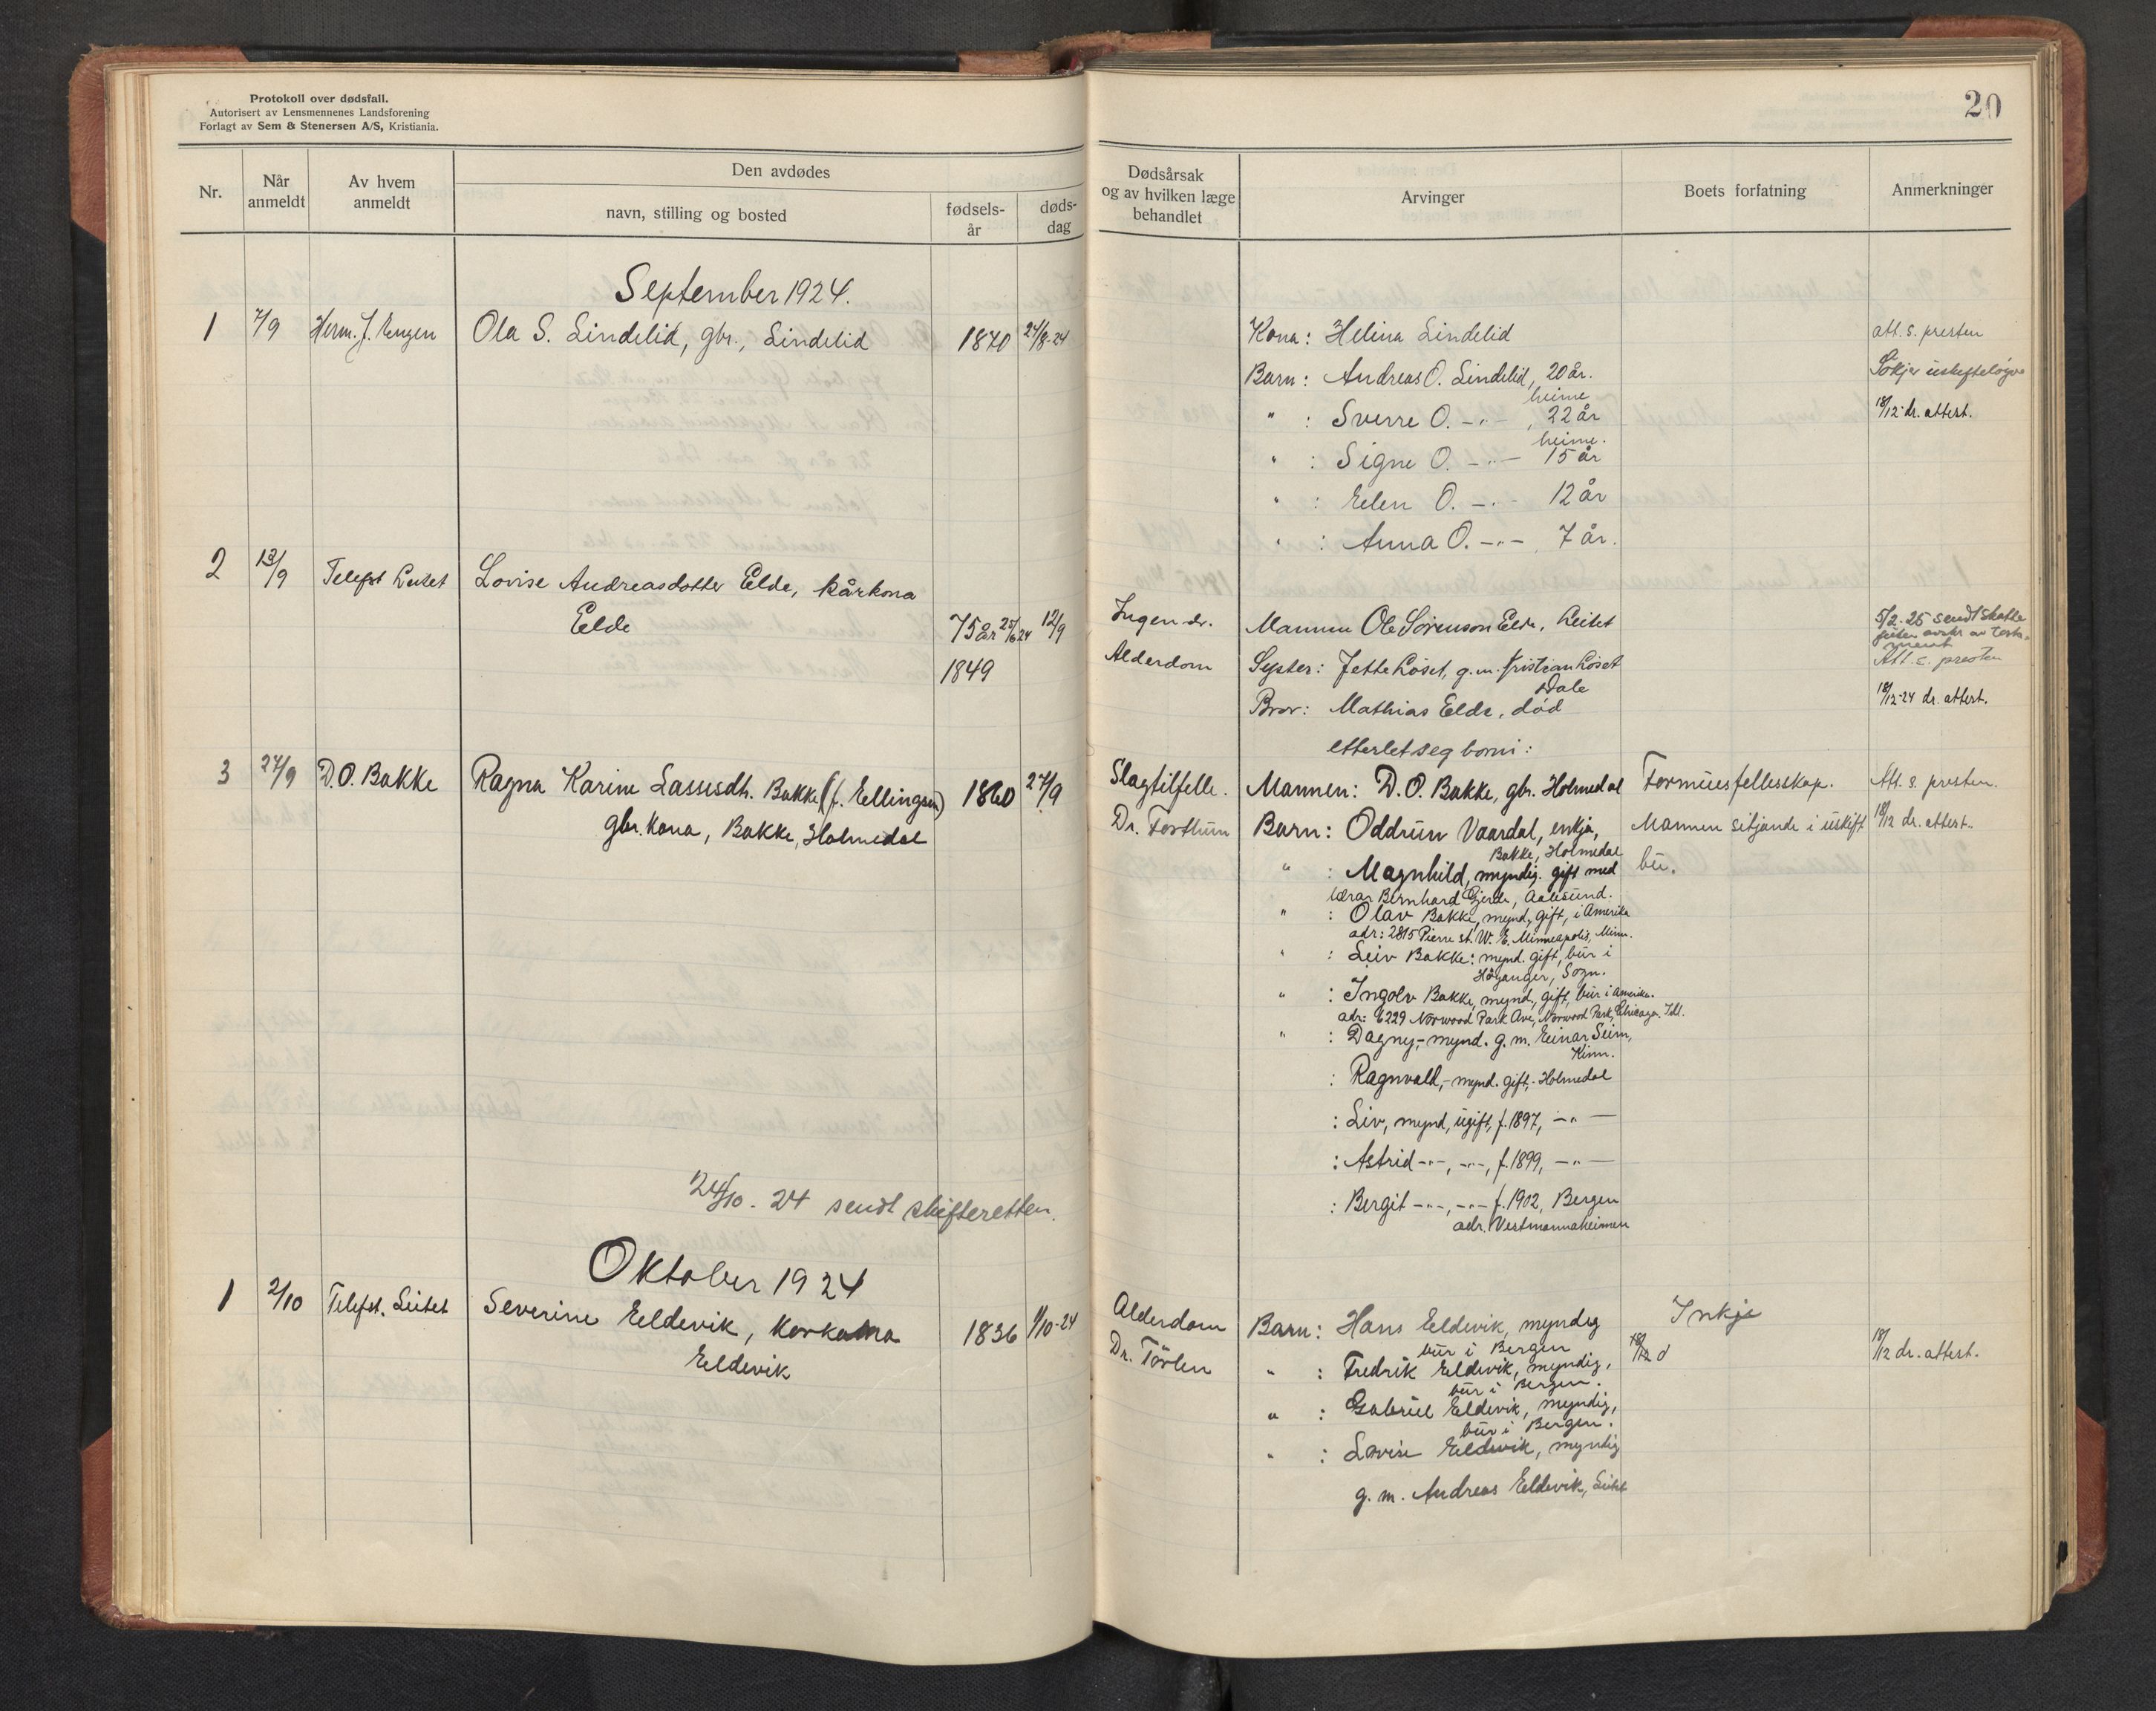 Protokoll over dødsfall.
Autorisert av Lensmennenes Landsforening
Forlagt av Sem & Stenersen A/S, Kristiania.
20
Nr.
Når anmeldt
Av hvem anmeldt
Den avdødes
navn, stilling og bosted
fødsels-år
døds-dag
Dødsårsak og av hvilken læge behandlet
Arvinger
Boets forfatning
Anmerkninger
September 1924.
1 7/9 Herm. J. Engen Ola S. Lindelid, gbr., Lindelid 1870 24/8-24
Kona: Helina Lindelid
att. s. presten
Barn: Andreas O. Lindelid, 20 år.
heime
Søkjer
" : Sverre O. -"- , 22 år
heime.
18/12 dr. attest.
" : Signe O. -"- 15 år
" : Eelen O. -"- 12 år
" : Anna O. -"- 7 år.
2 13/9 Telefst Leitet Lovise Andreasdotter Eelde, kårkona
Eelde 75 år 25/6 24 12/9
1849
Ingen dr.
Alderdom
Mannen Ole Sørenson Eelde, Leitet
Syster: Jette Løset, g.m. Kristian Løset
Dale
Bror: Mathias Eelde, død
etterlet seg born:
5/2-25 sendt skatte
avskr av testa-
ment
Att. s. presten
18/12-24 dr. attest.
3 27/9 D.O. Bakke Ragna Karine Lassesdtr. Bakke (f. Eellingsen) 1860 27/9
gbr. kona, Bakke, Holmedal
Slagtilfelle.
Dr. Forthun
Mannen: D.O. Bakke, gbr. Holmedal
Barn: Oddrun Vaardal, enkja,
Bakke, Holmedal
" : Magnhild, myndig. gift med
lærar Bernhard Gjerde, Aalesund.
" : Olav Bakke, mynd, gift, i Amerika
adr: 2815 Pierre st. W. E. Minneapolis, Minn.
" : Leiv Bakke: mynd. gift, bur i
Høyanger, Sogn.
" : Ingolv Bakke, mynd, gift, bur i Amerika.
adr: 6229 Norwood Park Ave, Norwood Park, Chicago. Ill.
" : Dagny,- mynd. g. m. Einar Seim,
Kinn.
: Ragnvald,- mynd. gift,- Holmedal
: Liv, mynd, ugift, f. 1897, -"-
: Astrid -"-, -"-, f. 1899, -"-
: Bergit -"-, -"- f. 1902, Bergen
adr. Vestmannaheimen
Formuesfellesskap.
Mannen sitjande i uskift
bu.
Att. s. presten.
18/12 dr. attest.
24/10 - 24 sendt skifteretten.
Oktober 1924
1 2/10 Telefst. Leitet Severine Eeldevik, Korkona 1836 1/10-24
Eeldevik
Alderdom
Dr. Tørlen
Barn: Hans Eeldevik, myndig
bur i Bergen
" : Fredrik Eeldevik, myndig,
bur i Bergen.
" : Gabriel Eeldevik, myndig,
bur i Bergen.
" : Lovise Eeldevik, myndig
g. m. Andreas Eeldevik, Leitet
Inkje
18/12 d
18/12 dr. attest.